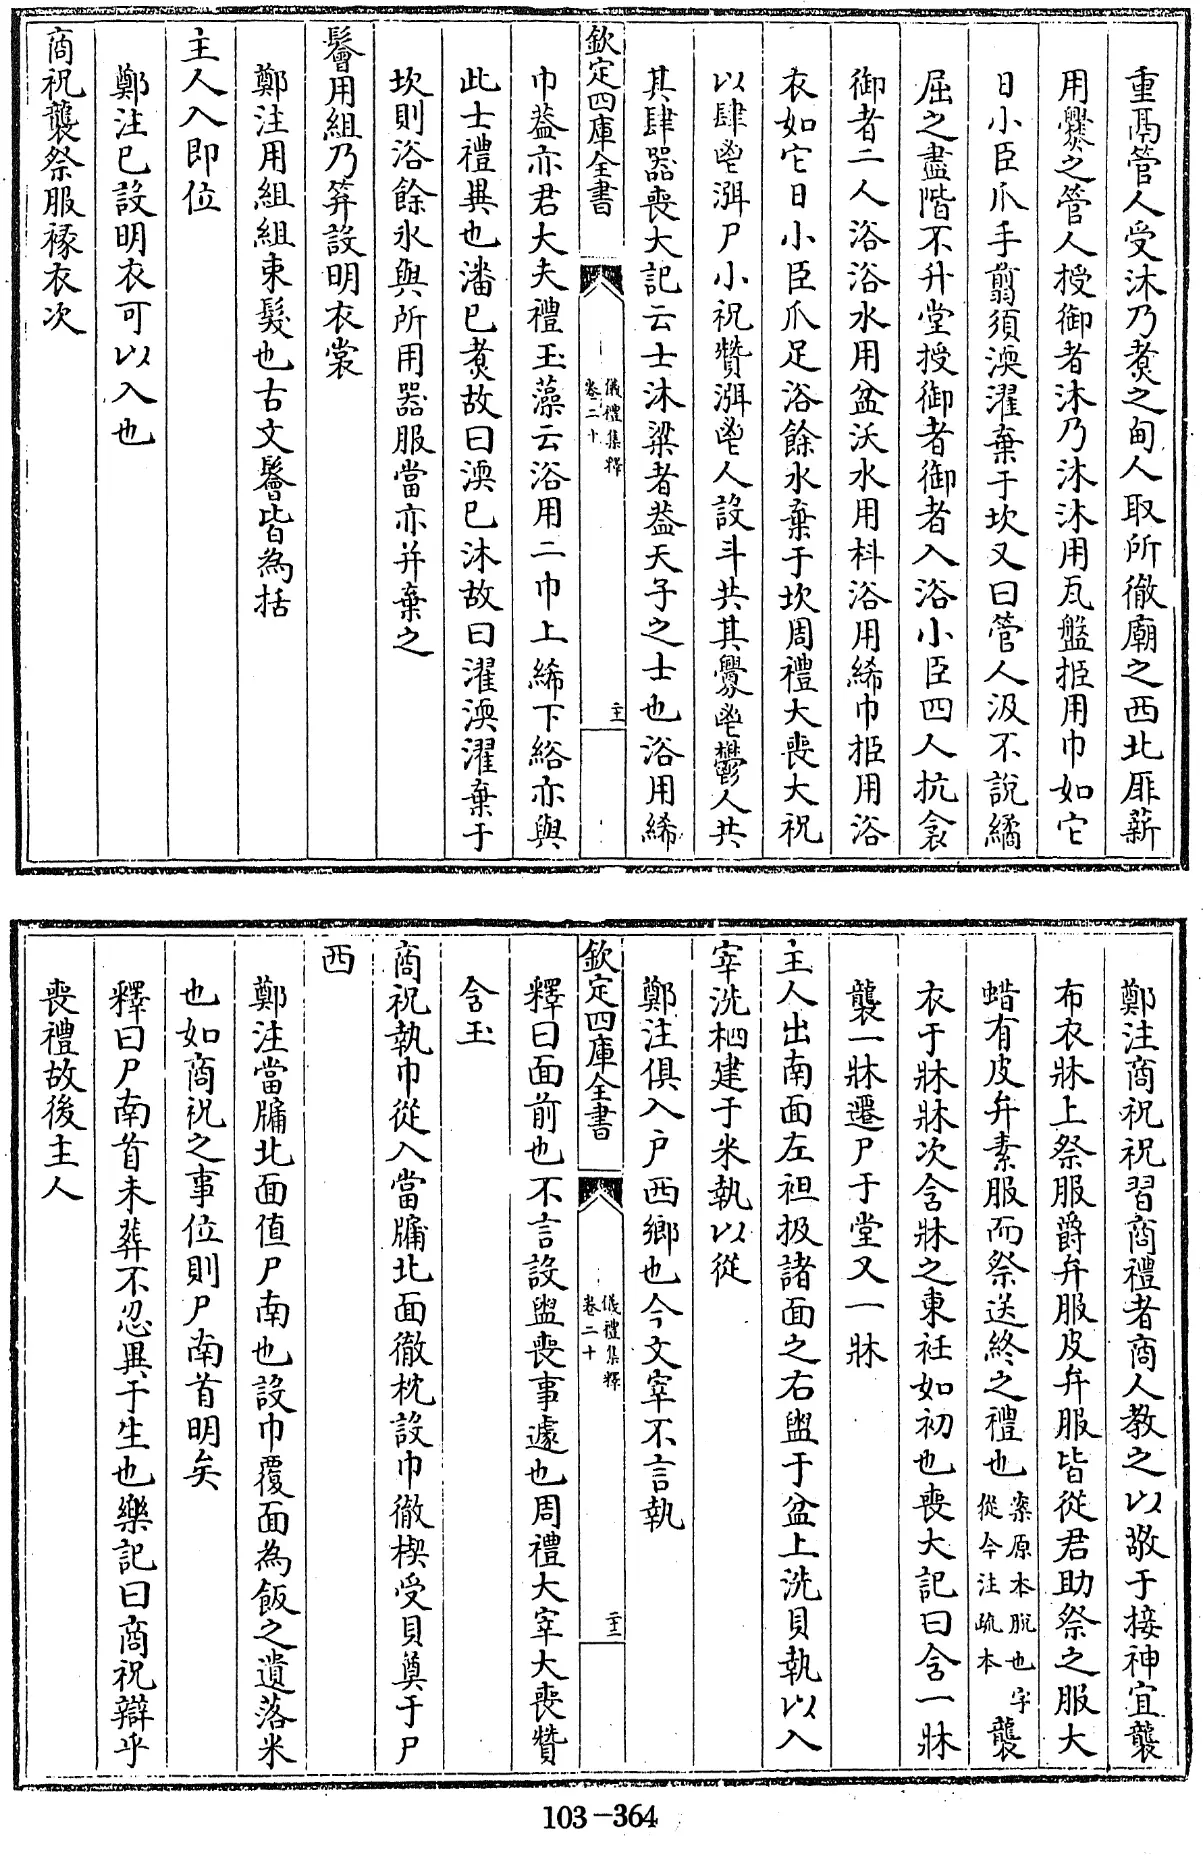 重鬲管人受沐乃煑之甸人取所徹廟之西北厞薪
用爨之管人授御者沐乃沐沐用瓦盤挋用巾如它
日小臣爪手翦須渜濯棄于坎又曰管人汲不說繘
屈之盡階不升堂授御者御者入浴小臣四人抗衾
御者二人浴浴水用盆沃水用枓浴用絺巾挋用浴
衣如它日小臣爪足浴餘水棄于坎周禮大喪大祝
以肆鬯渳尸小祝贊渳鬯人設斗共其釁鬯鬱人共
其肆器喪大記云士沐粱者葢天子之士也浴用絺
欽定四庫全書
儀禮集釋
卷二十
二十一
巾葢亦君大夫禮玉藻云浴用二巾上絺下綌亦與
此士禮異也潘已煑故曰渜已沐故曰濯渜濯棄于
坎則浴餘水與所用器服當亦并棄之
鬠用組乃筓設明衣裳
鄭注用組組束髮也古文鬠皆為括
主人入即位
鄭注已設明衣可以入也
商祝襲祭服褖衣次
鄭注商祝祝習商禮者商人教之以敬于接神宜襲
布衣牀上祭服爵弁服皮弁服皆從君助祭之服大
蜡有皮弁素服而祭送終之禮也案原本脫也字從今注疏本襲
衣于牀牀次含牀之東衽如初也喪大記曰含一牀
襲一牀遷尸于堂又一牀
主人出南面左袒扱諸面之右盥于盆上洗貝執以入
宰洗柶建于米執以從
鄭注俱入户西鄉也今文宰不言執
欽定四庫全書
儀禮集釋
卷二十
二十二
釋曰面前也不言設盥喪事遽也周禮大宰大喪贊
含玉
商祝執巾從入當牖北面徹枕設巾徹楔受貝奠于尸
西
鄭注當牖北面值尸南也設巾覆面為飯之遺落米
也如商祝之事位則尸南首明矣
釋曰尸南首未葬不忍異于生也樂記曰商祝辯乎
喪禮故後主人
103-364